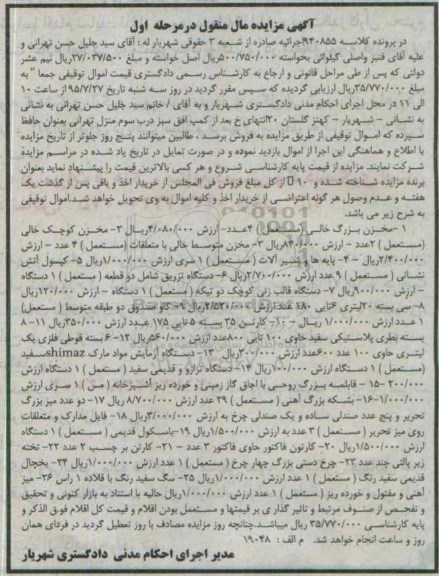 آگهی مزایده مال منقول در مرحله اول
در پرونده کلاسه ۹۴۰۸۵۵ اجرائیه صادره از شعبه ۳ حقوقی شهریار له : آقای سید جلیل حسن تهرانی و
علیه آقای فنبر واصلی گیلوائی بخواسته ۵۰۰/۷۵۰/۰۰۰ ریال اصل خواسته و مبلغ ۲۷/۰۳۷/۵۰۰ ریال نیم عشر
دولتی که پس از طی مراحل قانونی و ارجاع به کارشناس رسمی دادگستری قیمت اموال توقیفی جمعا " به
مبلغ ۳۵/۷۷۰/۰۰۰ ریال ارزیابی گردیده که سپس مقرر گردید در روز سه شنبه تاریخ ۹۵/۷/۲۷ از ساعت ۱۰
الی ۱۱ در محل اجرای احکام مدنی دادگستری شهریار و به آقای / خانم سید جلیل حسن تهرانی به نشانی
به نشانی - شهریار - کهنز گلستان ۲۰ انتهای خ بعد از کمپ افق سبز درب سوم منزل تهرانی بعنوان حافظ
سپرده که اموال توقیفی از طریق مزایده به فروش برسد . طالبین میتوانند پنج روز جلوتر از تاریخ مزایده
با اطلاع و هماهنگی این اجرا از اموال بازدید نموده و در صورت تمایل در تاریخ یاد شده در مراسم مزایدة
شرکت نمایند. مزایده از قیمت پایه کارشناسی شروع و هر کسی بالاترین قیمت را پیشنهاد نماید بعنوان
برنده مزایده شناخته شده و ۱۰ از کل مبلغ فروش فی المجلس از خریدار اخذ و باقی پس از گذشت یک
هفته و عدم وصول هر گونه اعتراضی از خریدار اخذ و کلیه اموال به وی تحویل خواهد شد.اموال توقیفی
به شرح زیر می باشد.
۱-مخزن بزرگ خالی (مستعمل) ۴عدد- ارزش ۴/۰۸۰/۰۰۰ریال ۲- مخزن کوچک خالی
(مستعمل ) ۲عدد - ارزش ۸۴۰/۰۰۰ریال ۳- مخزن متوسط خالی با متعلقات (مستعمل ) ۴ عدد - ارزش
۲/۴۰۰/۰۰۰ریال -۴- پایه ها و شیر آلات ( مستعمل ) ۱ سری ارزش ۱/۰۰۰/۰۰۰ریال ۵- کپسول آتش
نشانی ( مستعمل ) ۹ عدد ارزش ۲/۷۰۰/۰۰۰ریال ۶-دستگاه تزریق شامل دو قطعه ( مستعمل ) ۱ دستگاه
- ارزش ۹۰۰/۰۰۰ریال ۷- دستگاه قالب زنی کوچک دو تیکه ( مستعمل ) ۱ دستگاه - ارزش ۱۲۰/۰۰۰ریال
۸- سی بسته ۲۰لیتری ۶تایی ۱۸۰ عدد ارزش ۲/۵۲۰/۰۰۰ریال ۹- گاو صندوق دو طبقه متوسط ( مستعمل )
۱ عدد ارزش ۱/۰۰۰/۰۰۰ ریال -۱۰- کارتن ۳۵ بسته ۵ تایی ۱۷۵ عدد ارزش ۳۵۰/۰۰۰ریال ۱۱- ۸
بسته بطری پلاستیکی سفید حاوی ۱۰۰ تایی ۸۰۰عدد ارزش ۵۶۰/۰۰۰ریال ۱۲-۶ بسته قوطی فلزی یک
لیتری حاوی ۱۰۰ عدد ۶۰۰عدد ارزش ۳۰۰/۰۰۰ریال ۱۳- دستگاه آزمایش مواد مارک shimazسفید
( مستعمل ) ۱دستگاه ارزش ۱۰۰/۰۰۰ریال ۱۴- دستگاه ترازو و قدیمی سفید ( مستعمل ) ۱ دستگاه ارزش
۲۰۰/۰۰۰ -۱۵- قابلمه بزرگ روحی با اجاق گاز زمینی و خورده ریز آشپزخانه ( مسی ) ۱ سری ارزش
۱/۰۰۰/۰۰۰-۱۶- بشکه بزرگ آهنی ( مستعمل ) ۲۹ عدد ارزش ۸/۷۰۰/۰۰۰ ریال ۱۷- دو عدد میز بزرگ
تحریر و پنج عدد صندلی ساده و یک صندلی چرخ به ارزش ۳/۰۰۰/۰۰۰ریال ۱۸- فایل مدارک و متعلقات
روی میز تحریر ( مستعمل ) ۳ عدد به ارزش ۱/۵۰۰/۰۰۰ریال ۱۹-باسکول قدیمی ( مستعمل ) ۱ دستگاه
ارزش ۱/۵۰۰/۰۰۰ریال ۲۰- کارتون فاکتور حاوی فاکتور ۳ عدد - ۲۱- کارتن بر چسب ۲ عدد ۲۲- تخته
زیر پالتی چند عدد ۲۳- چرخ دستی بزرگ چهار چرخ ( مستعمل ) ۱ عدد ارزش ۱/۰۰۰/۰۰۰ریال ۲۴- یخچال
قدیمی سفید رنگ ( مستعمل ) ۱ عدد ارزش ۱/۰۰۰/۰۰۰ریال ۲۵- سگ سفید رنگ با قلاده ۱ راس ۲۶- میز
آهنی و مفتول و خورده ریز ( مستعمل ) ۱ عدد ارزش ۱/۰۰۰/۰۰۰ریال حالیه با استناد به بازار کنونی و تحقیق
و تفحص از صنوف مرتبط و تاثیر گذاری بر قیمتها و مستعمل بودن اقلام و قیمت کل اقلام فوق الذکر و
پایه کارشناسی ۳۵/۷۷۰/۰۰۰ ریال میباشد.چنانچه روز مزایده مصادف با روز تعطیل گردید در فردای همان
روز و ساعت انجام خواهد شد. م الف : ۱۹۰۴۸
مدیر اجرای احکام مدنی دادگستری شهریار